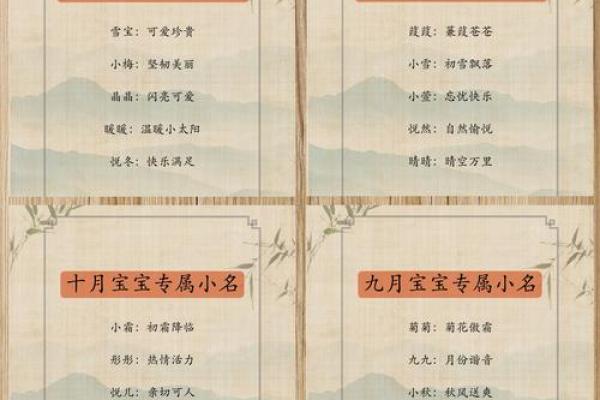 雪宝：可爱珍贵
小梅：坚韧美丽
晶晶：闪亮可爱
暖暖：温暖小太阳
悦冬：快乐满足
葭葭：蒹葭苍苍
小雪：初雪飘落
小萱：忘忧快乐
悦然：自然愉悦
晴晴：晴空万里
十月宝宝专属小名
小霜：初霜降临
彤彤：热情活力
悦儿：亲切可人
九月宝宝专属小名
菊菊：菊花傲霜
九九：月份谐音
小秋：秋风送爽